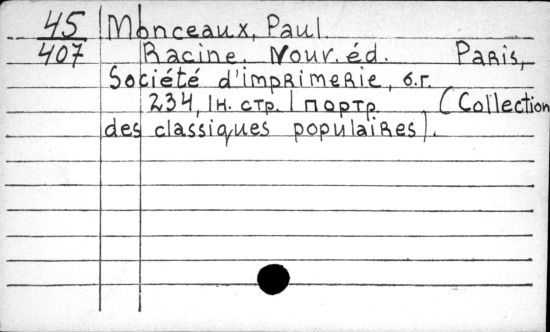 45 Monceaux, Paul.
407 Racine. Nouv. éd. Paris,
Société d'imprimerie, б.г.
234, 1н. стр. 1 портр. (Collection
des classiques populaires).